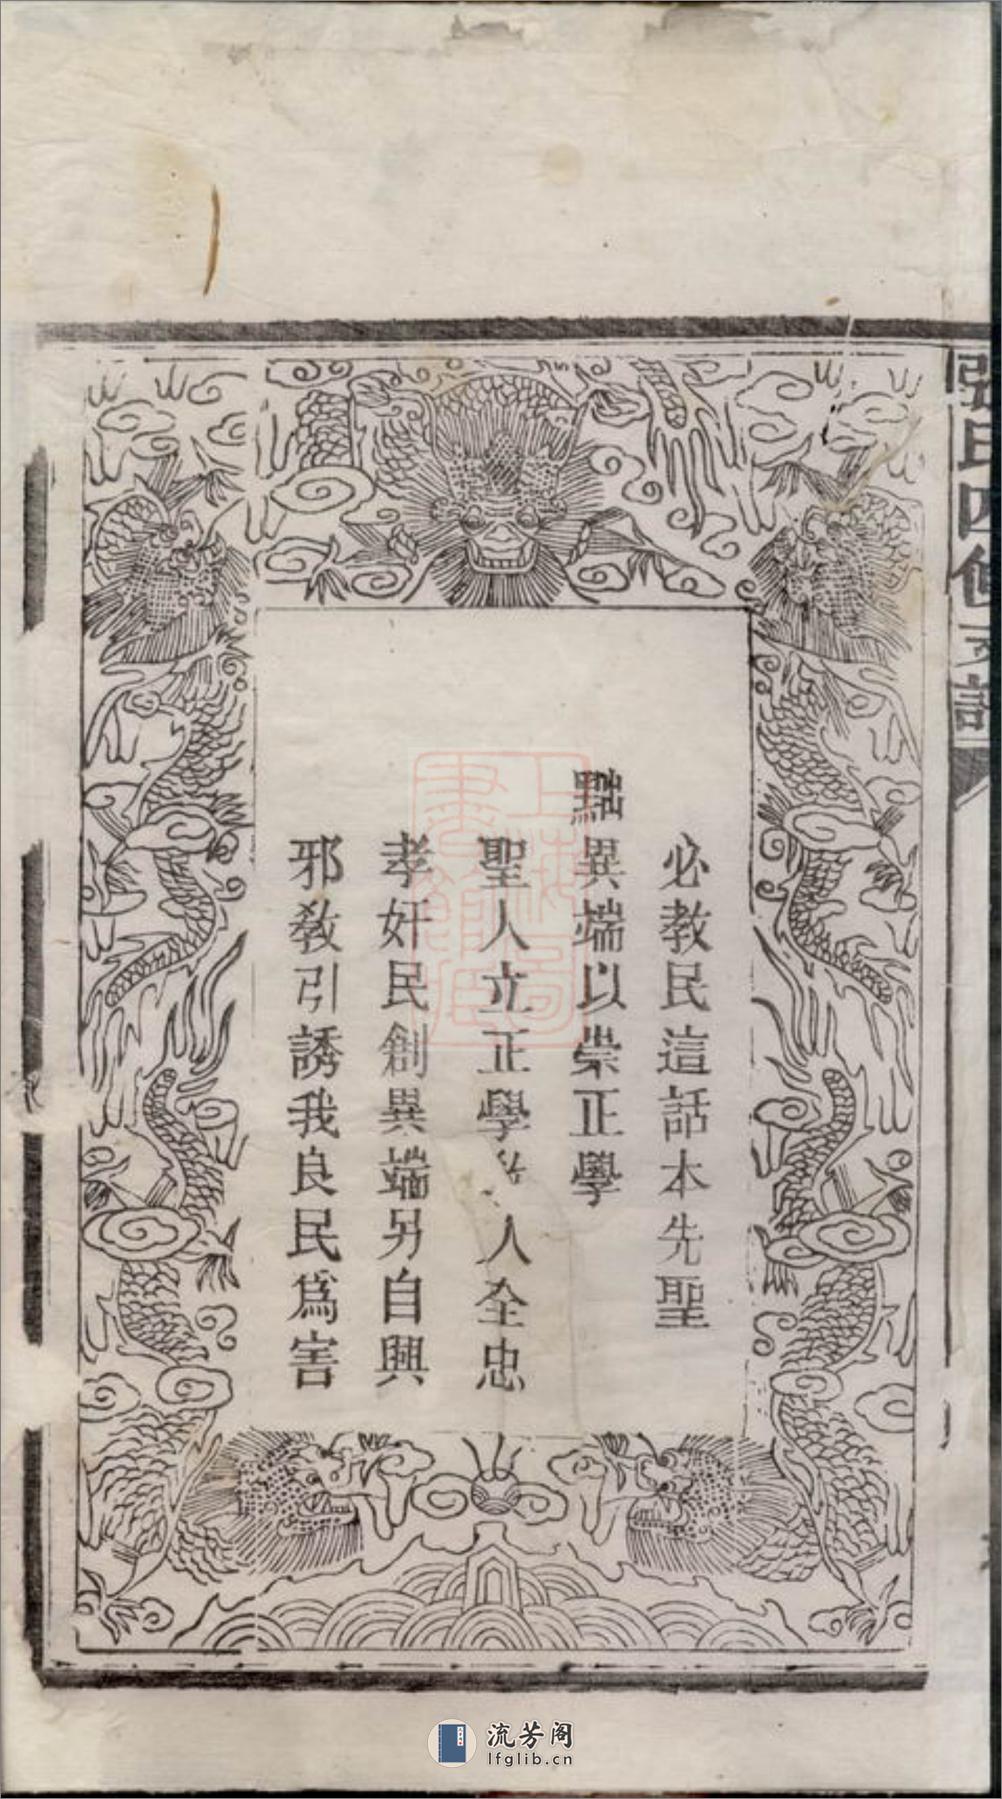 張氏四修支譜
必教民這話本先聖
黜異端以崇正學
聖人立正學 人全忠
孝奸民創異端另自興
邪教引誘我良民爲害
上海圖書館藏
流芳阁
lfglib.cn